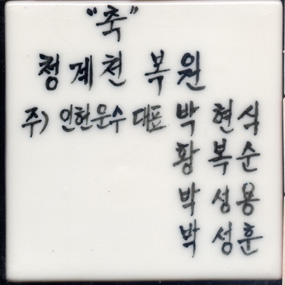 "축"
청계천 복원
주) 인헌운수 대표 박현식
황복순
박성용
박성훈